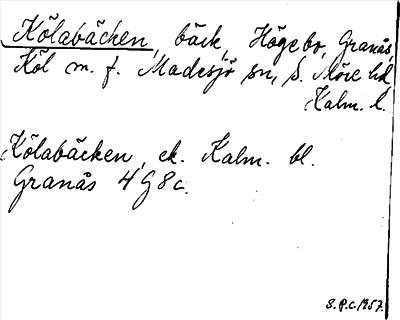 Kölabäcken, bäck, Högebo, Granås,
Köl m. f. Madesjö sn, S. Möre hd,
Kalm. l.
Kölabäcken, ek. Kalm. bl.
Granås 4G8c.
S.P.C. 1957.